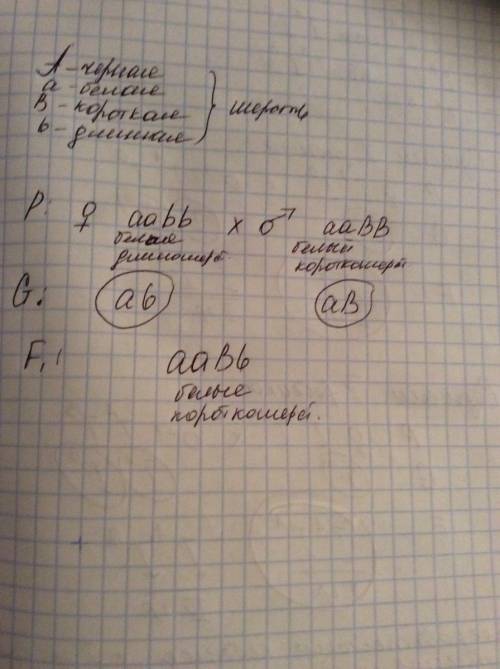 A - черная
a - белая
B - короткая
b - длинная
} шерсть
P: ♀ aabb x ♂ aaBB
белая белый
длинношерст. короткошерст
G: ab aB
F₁: aaBb
белые
короткошерст.